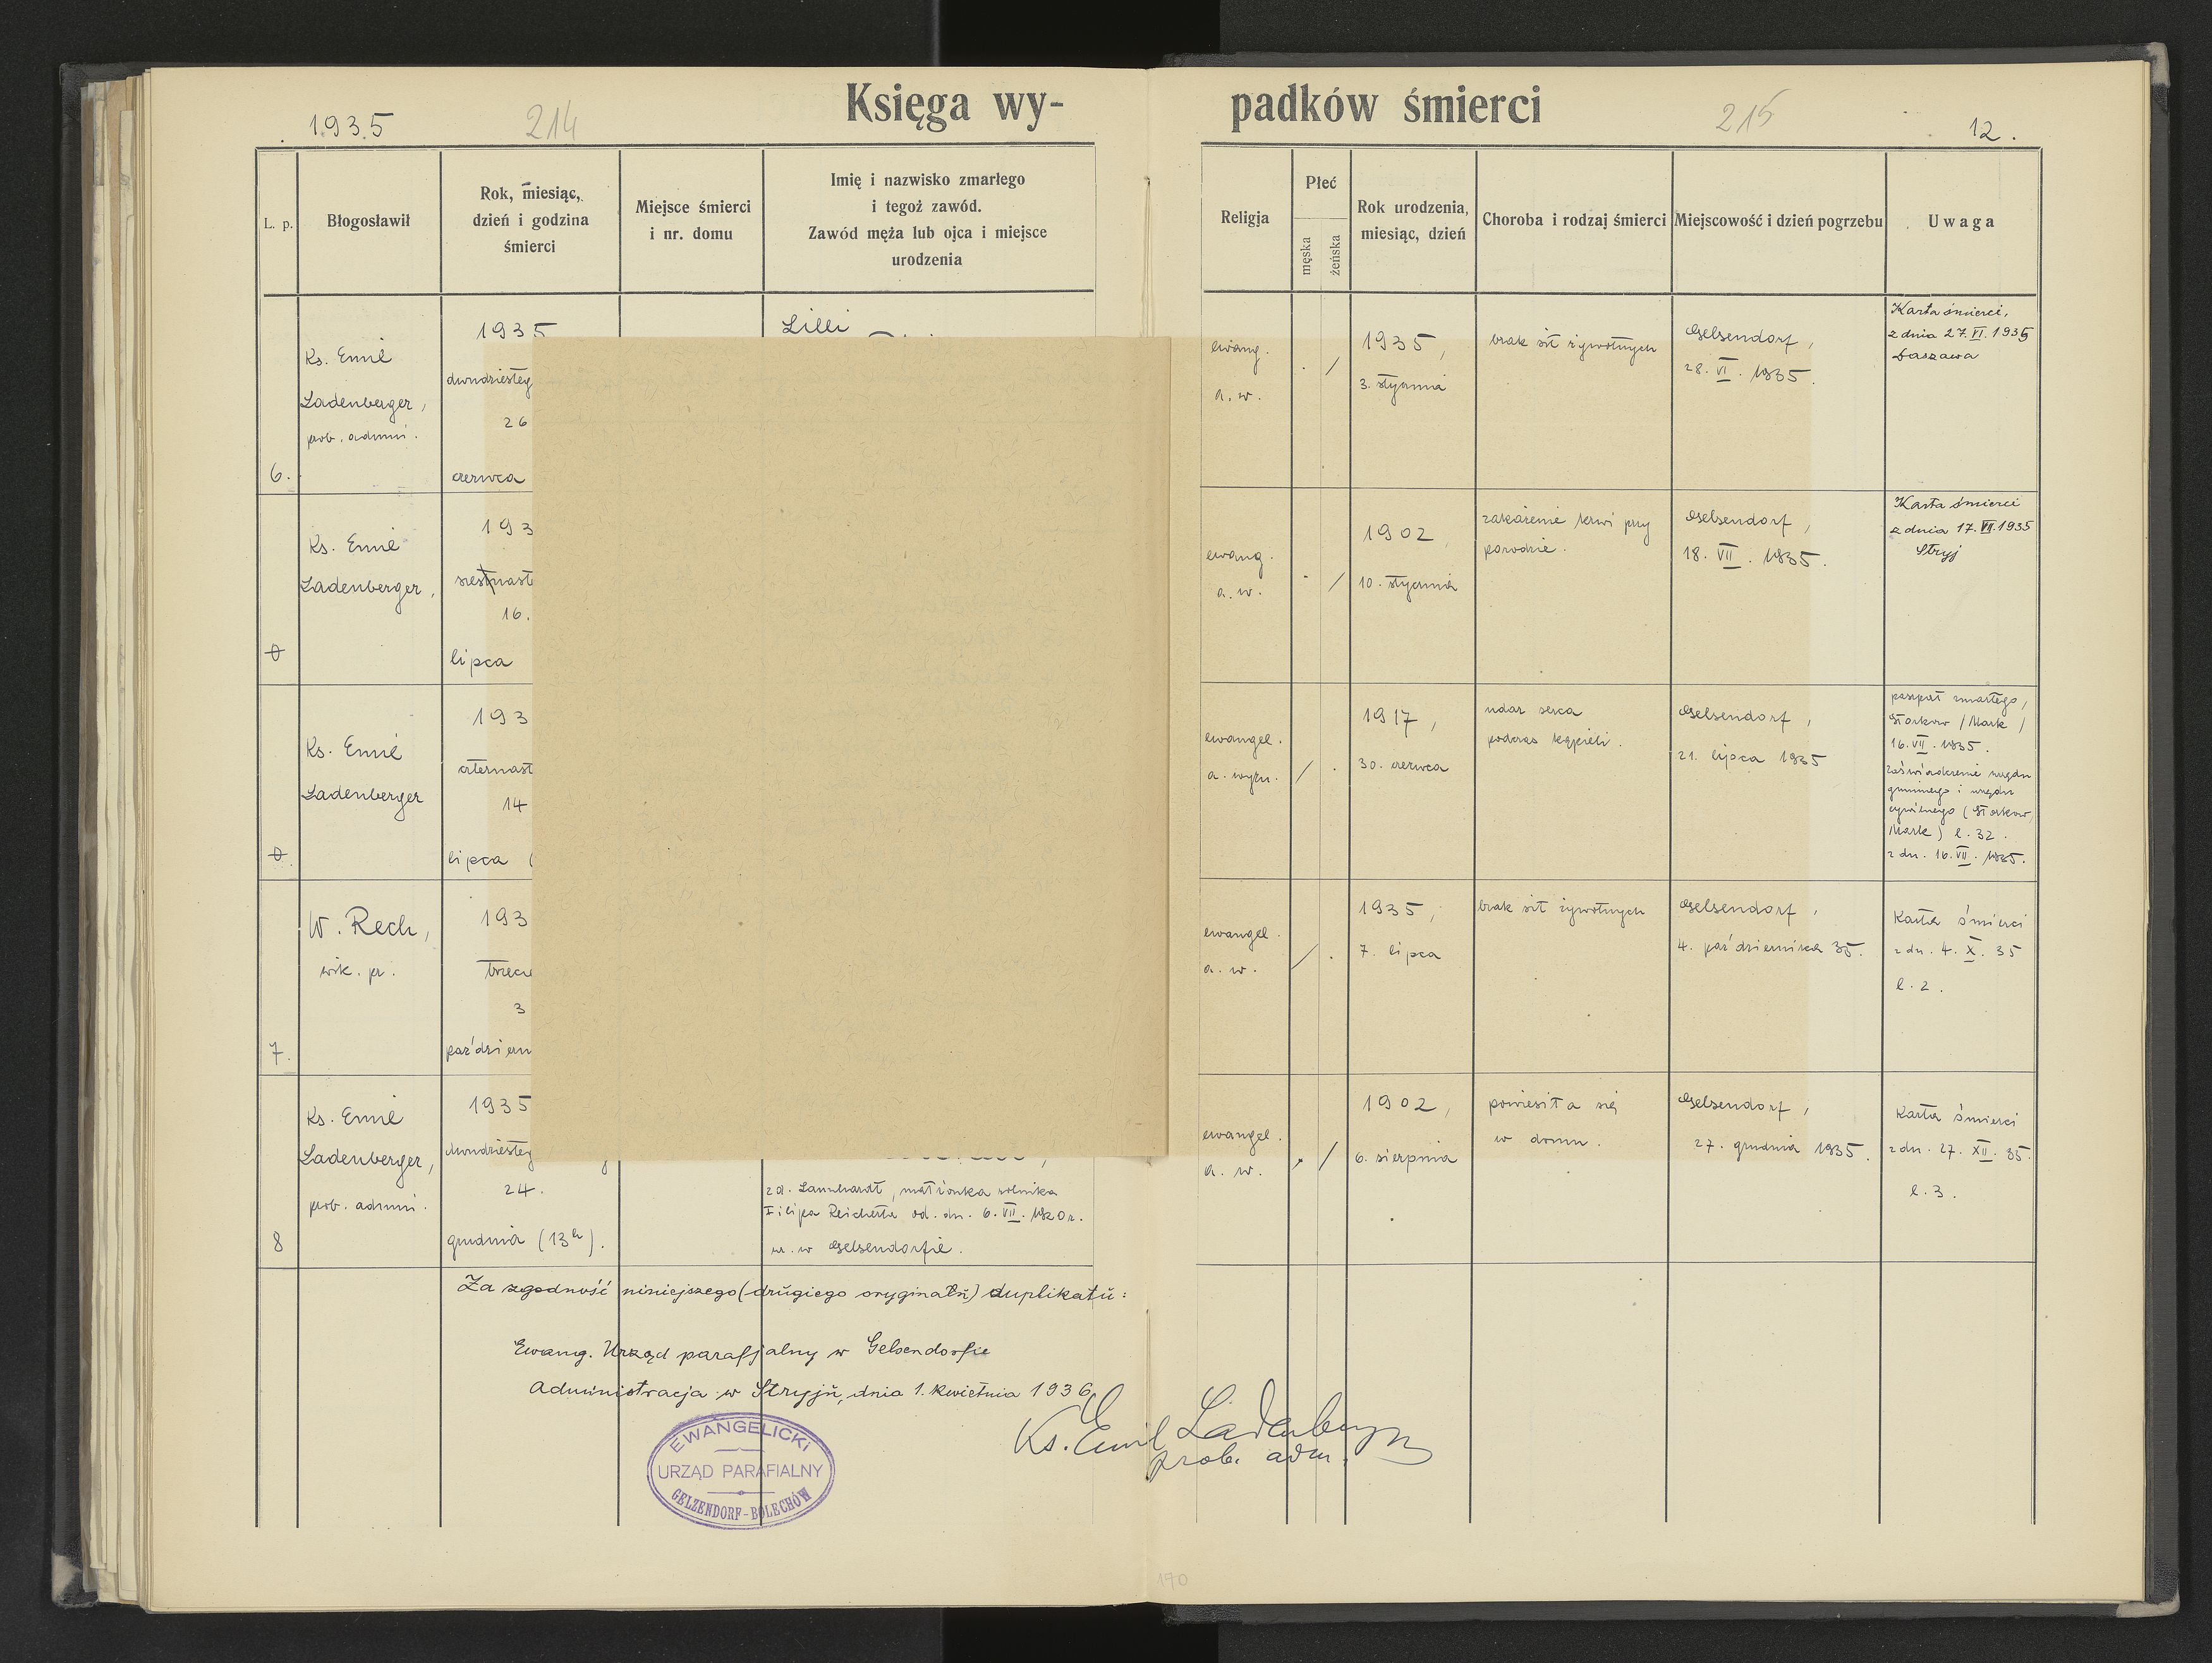 1935
214
Księga wy-
L. p.
Błogosławił
Rok, miesiąc,
dzień i godzina
śmierci
Miejsce śmierci
i nr. domu
Imię i nazwisko zmarłego
i tegoż zawód.
Zawód męża lub ojca i miejsce
urodzenia
6.
Ks. Emil
Ladenberger,
prob. admni.
1935
dwudziesteg
26
czerwca
Lilli
Ks. Emil
Ladenberger,
193
16.
lipca
Ks. Emil
Ladenberger
193
czternast
14
lipca (
7.
W. Rech,
wik. pr.
193
trzeci
3
październ
8
Ks. Emil
Ladenberger,
prob. admni.
1935
dwudziesteg
24.
grudnia (13h).
zd. Lanzhardt, małżonka rolnika
Filipa Reicherta od. dn. 6. VII. 1920 r.
ur. w Gelsendorfie.
Za zgodność niniejszego (drugiego oryginału) duplikatu:
Ewang. Urząd parafjalny w Gelsendorfie
Administracja w Stryju, dnia 1. kwietnia 1936
EWANGELICKI
URZĄD PARAFIALNY
GELZENDORF-BOLECHÓW
padków śmierci
215
12.
Religja
Płeć
męska
żeńska
Rok urodzenia,
miesiąc, dzień
Choroba i rodzaj śmierci
Miejscowość i dzień pogrzebu
Uwaga
ewang.
a. w.
1935,
3. stycznia
brak sił żywotnych
Gelsendorf,
28. VI. 1935.
Karta śmierci,
z dnia 27. VI. 1935
Daszawa
ewang.
a. w.
1902
10. stycznia
zakażenie krwi przy
porodzie.
Gelsendorf,
18. VII. 1935.
Karta śmierci
z dnia 17. VII. 1935
Stryj
ewangel.
a. wyzn.
1917,
30. czerwca
udar serca
podczas kąpieli.
Gelsendorf,
21. lipca 1935
paszport zmarłego,
Storkow /Mark/
16. VII. 1935.
zaświadczenie urzędu
gminnego i urzędu
cywilnego (Storkow,
Mark) l. 32.
z dn. 16. VII. 1935.
ewangel.
a. w.
1935,
7. lipca
brak sił żywotnych
Gelsendorf,
4. października 35.
Karta śmierci
z dn. 4. X. 35
l. 2.
ewangel.
a. w.
1902,
6. sierpnia
powiesiła się
w domu.
Gelsendorf,
27. grudnia 1935.
Karta śmierci
z dn. 27. XII. 35.
l. 3.
Ks. Emil Ladenberger
prob. adm.
190